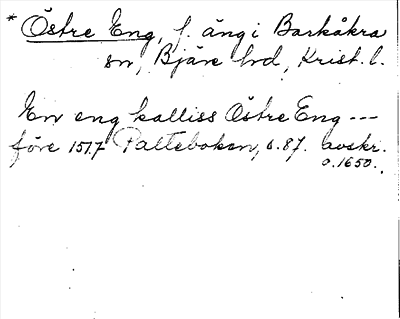 * Östre Eng, f. äng i Barkåkra
sn, Bjäre hd, Krist. l.
En eng kalliss Östre Eng ---
före 1517 Palteboken, s. 87. avskr.
o. 1650.